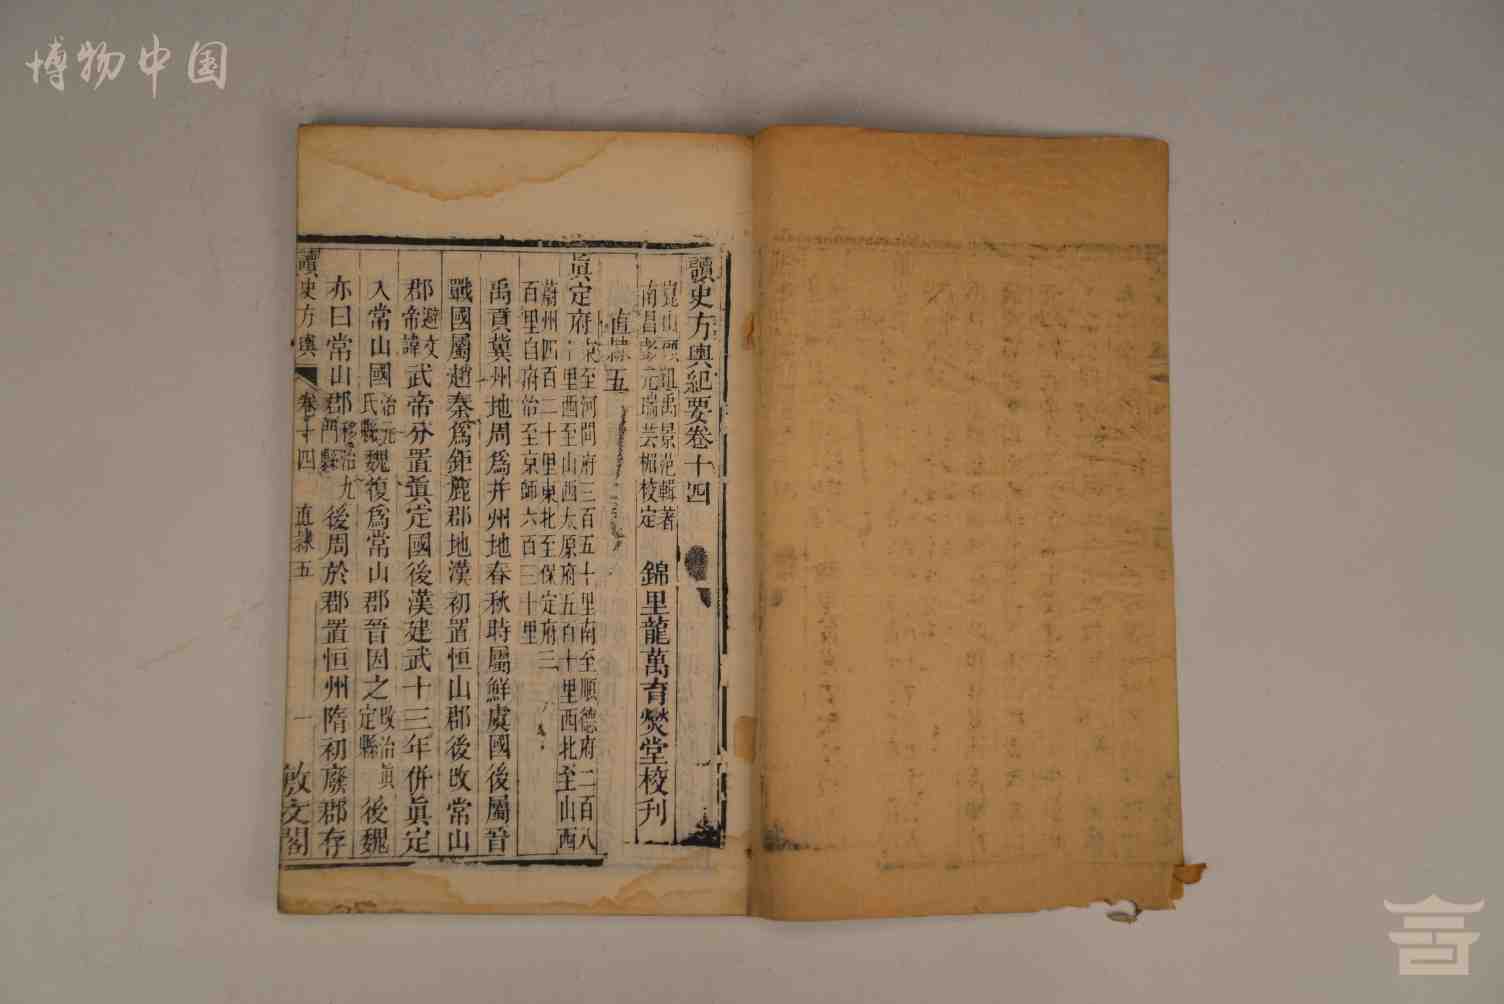 博物中国
讀史方輿紀要卷十四
崑山顧祖禹景范輯著
南昌彭元瑞芸楣校定
錦里龍萬育燮堂校刋
直隸五
眞定府東至河間府三百五十里南至順德府二百八
十里西至山西太原府五百十里西北至山西
蔚州四百二十里東北至保定府三
百里自府治至京師六百三十里
禹貢冀州地周爲并州地春秋時屬鮮虞國後屬晉
戰國屬趙秦爲鉅鹿郡地漢初置恒山郡後改常山
郡避文帝諱武帝分置眞定國後漢建武十三年併眞定
入常山國治元氏縣魏復爲常山郡晉因之改治眞定縣後魏
亦曰常山郡移治九門縣後周於郡置恒州隋初廢郡存
讀史方輿 卷十四 直隸五 一 敷文閣